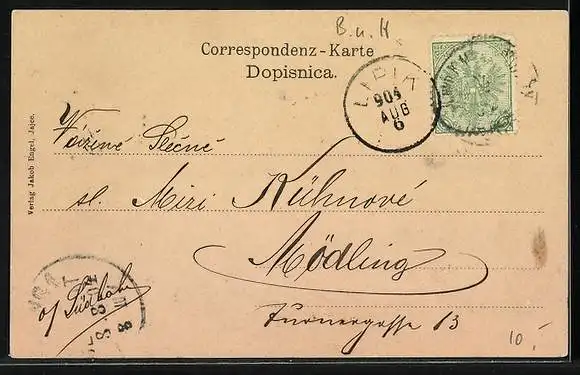 B. u. H
Correspondenz-Karte
Dopisnica.
LIPIK
904
AUG
6
Vážené Slečně
sl. Miri Kühnové
Mödling
o/ Südbahn
Turnergasse 13
10.-
Verlag Jakob Engel, Jajce.